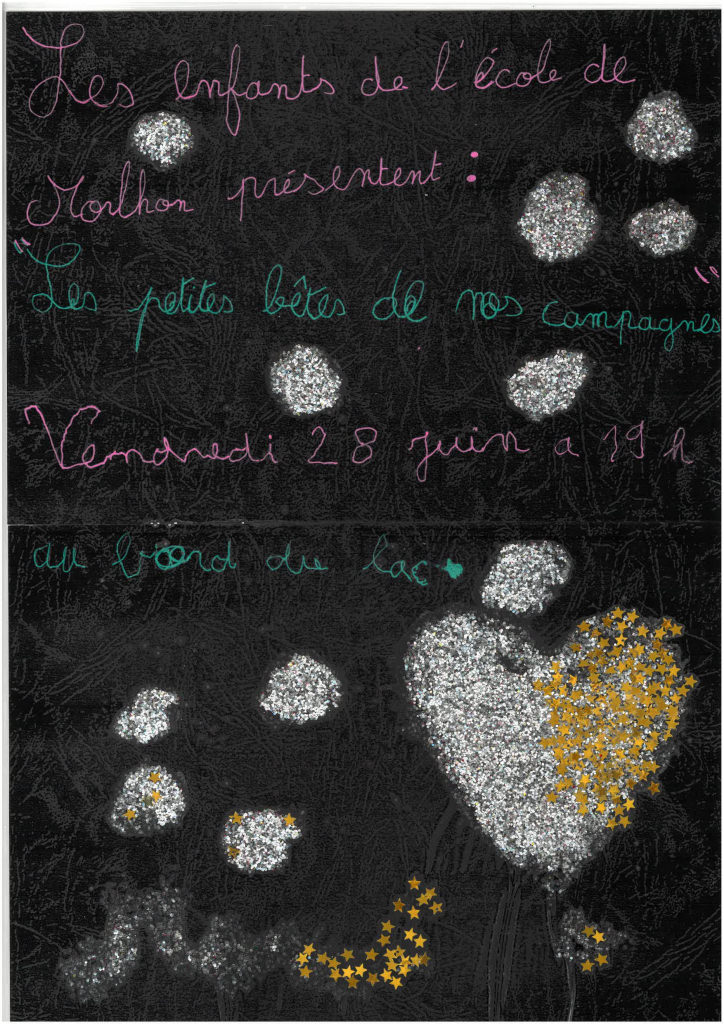 Les enfants de l'école de
Morlhon présentent :
"Les petites bêtes de nos campagnes"
Vendredi 28 juin a 19 h
au bord du lac.